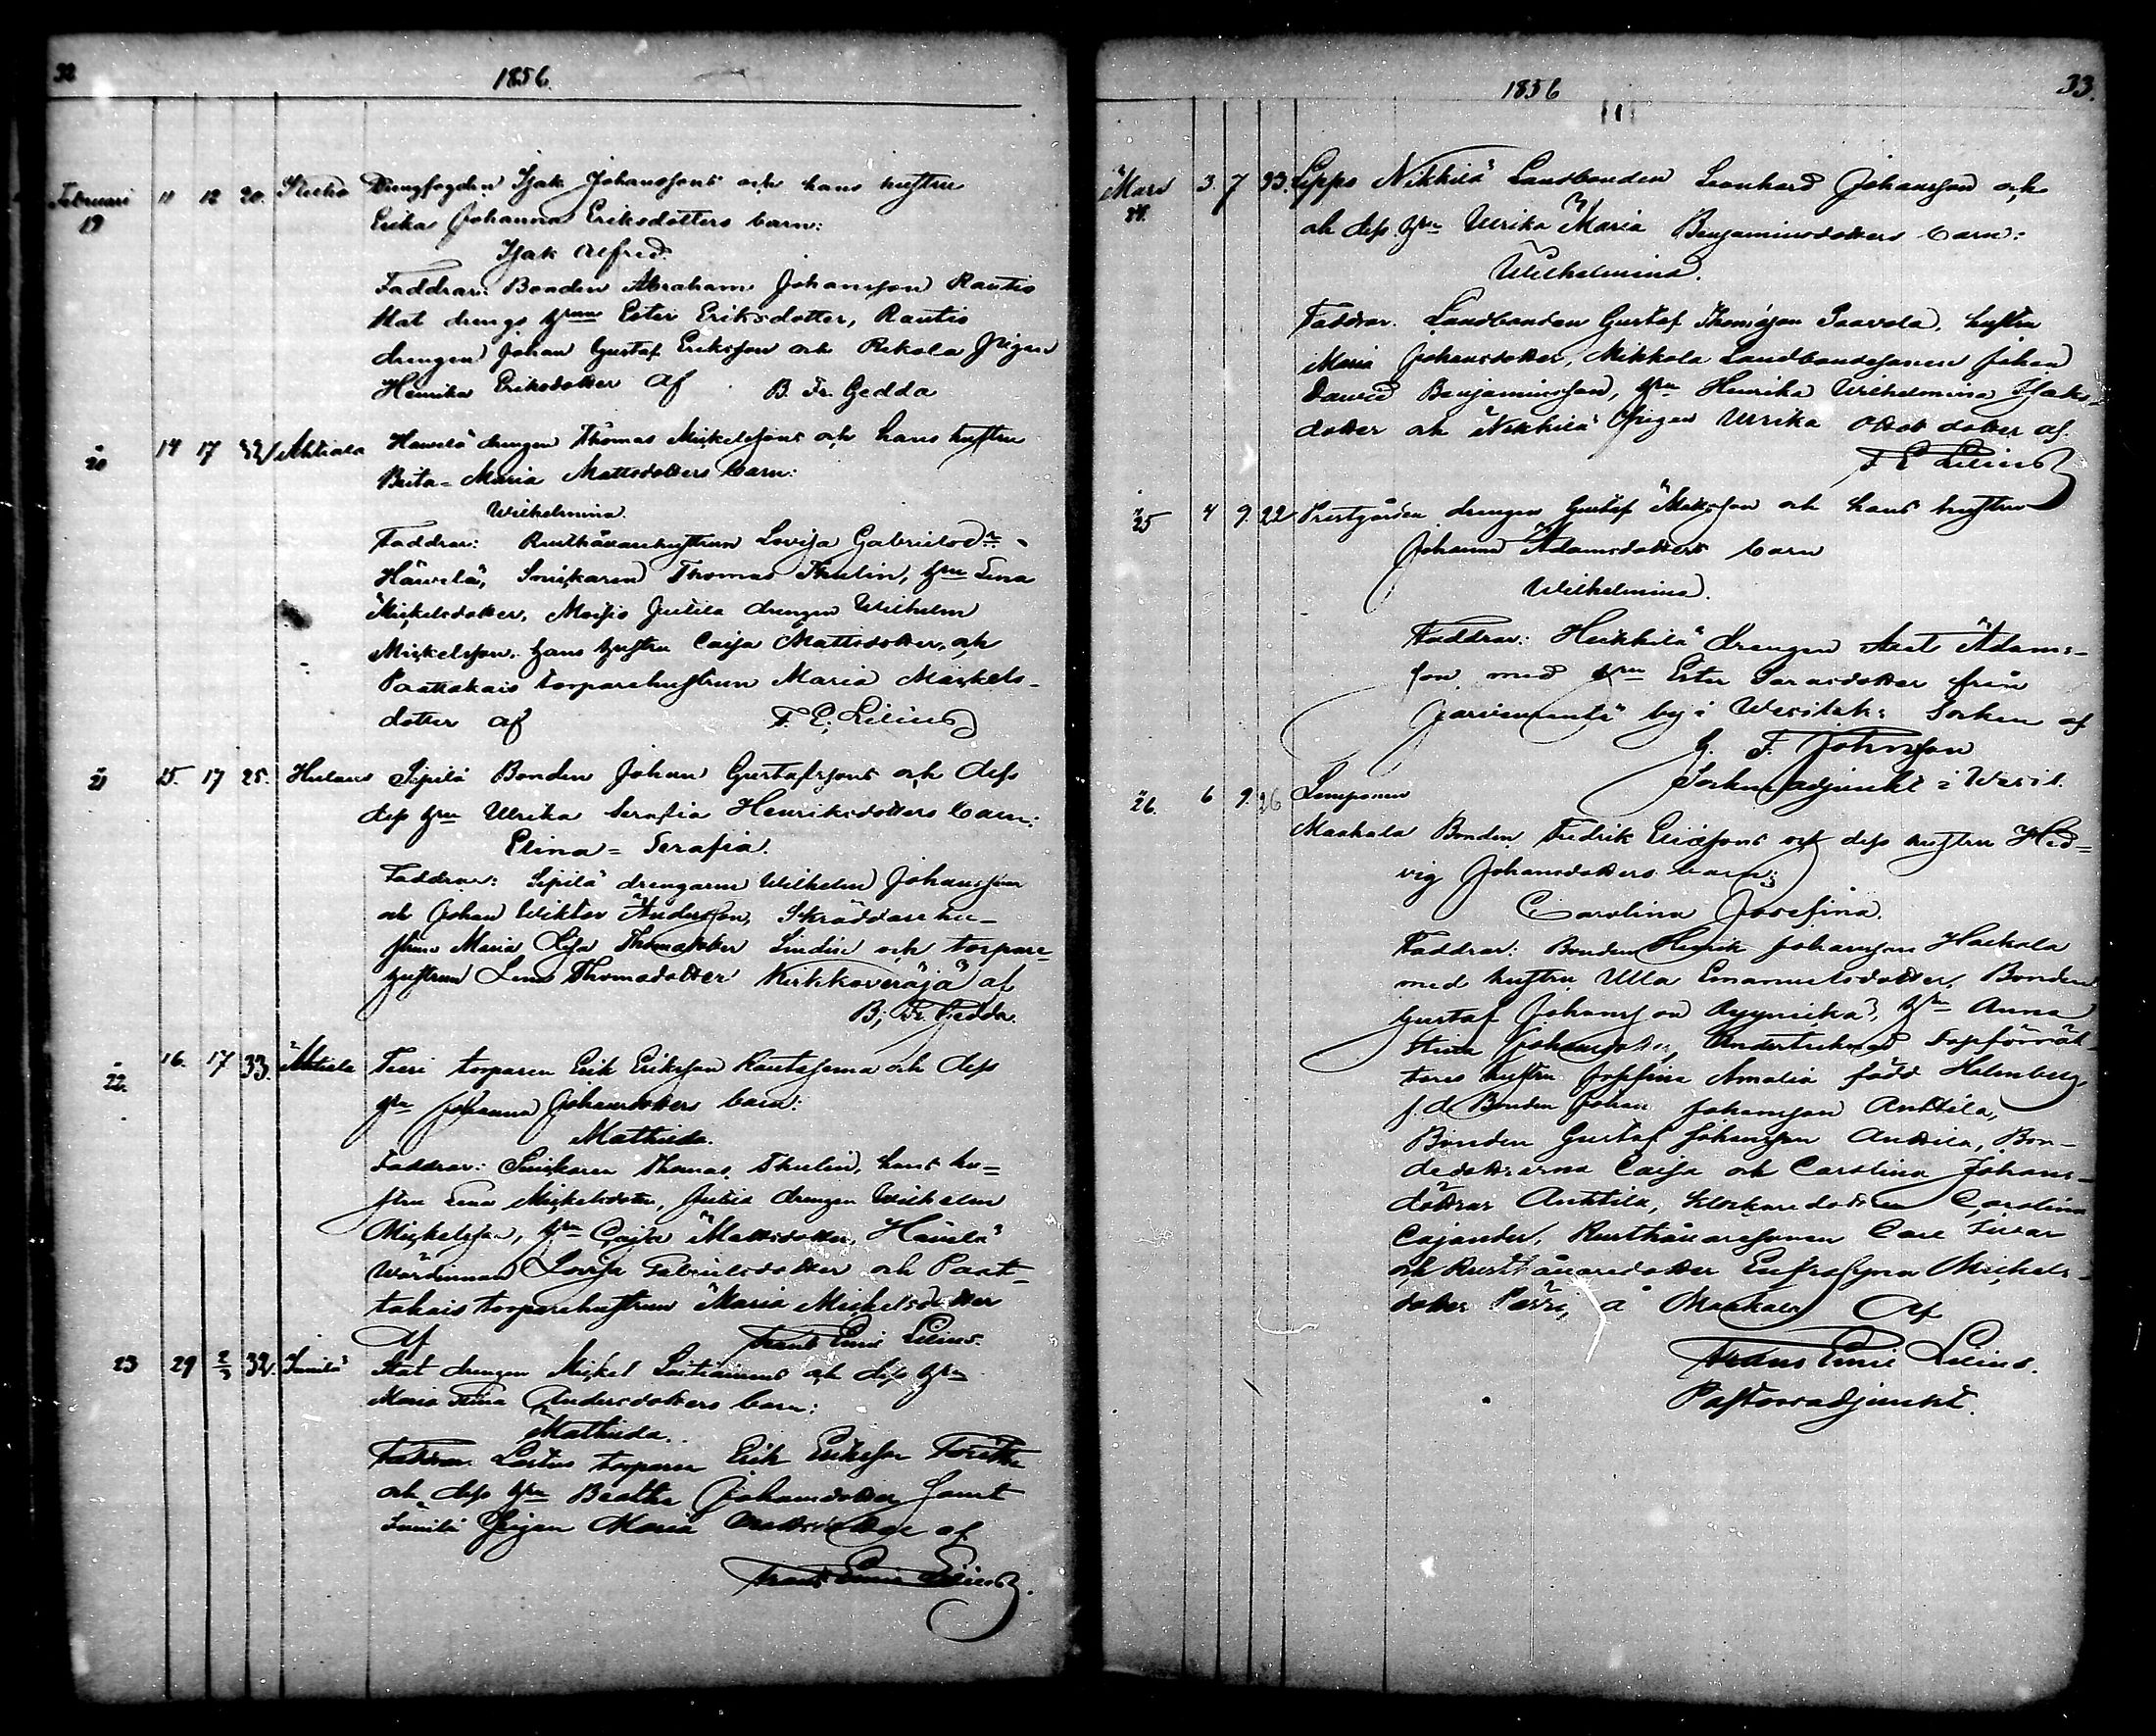 32
1856.
Februari 11 12 20. Drengfogden Isak Johanssons och hans hustru
19 Erika Johanna Eriksdotters barn:
Isak Alfred.
Faddrar: Bonden Abraham Johansson Rautio
Stat drengs hrun Ester Eriksdotter, Rautio
drengen Johan Gustaf Eriksson och Rekola Pigan
Henrika Eriksdotter af B. Fr. Gedda
20 14 17 Ahtiala Hawela drengen Thomas Mickelssons och hans hustru
Brita-Maria Mattsdotters barn:
Wilhelmina.
Faddrar: Rusthållarehustrun Lovisa Gabrielsdr.
Häwelä, Snickaren Thomas Thulin, hru Lena
Mickelsdotter, Moisio Jutila drengen Wilhelm
Mickelsson, hans hustru Caisa Mattsdotter, och
Paattakais torparehustrun Maria Mickels-
dotter af F. E. Lilius
21 15. 17 25. Sipilä Bonden Johan Gustafssons och dess
dess hru Ulrika Serafia Henriksdotters barn:
Elina=Serafia.
Faddrar: Sipilä drengarne Wilhelm Johansson
och Johan Wiktor Andersson, Skräddare hu-
strun Maria Lisa Thomasdotter Lindin och torpare
hustrun Lena Thomasdotter Kirkkoveräjä af
B. Fr. Gedda.
22. 16. 17 33. Ahtiala Tieri torparen Erik Eriksson Rautasuma och dess
hru Johanna Johansdotters barn:
Mathilda.
Faddrar: Snickaren Thomas Thulin, hans hu=
stru Lena Mickelsdotter, Jutila drengen Wilhelm
Mickelsson, hru Cajsa Mattsdotter, Häwelä
Wärdinnan Lovisa Gabrielsdotter och Paat-
takais torparehustrun Maria Mickelsdotter
af Frans Emil Lilius.
23 29 2/3 32. Sumilä Stat drengen Mickel och dess hru
Maria Stina Andersdotters barn:
Mathilda.
Faddrar: torparen Erik Eriksson
och dess hru Beatha Johansdotter samt
Sumilä Pigan Maria Mattsdotter af
Frans Emil Lilius.
1856 33.
Mars 3. 7 33. Seppä Nikkilä Landbonden Leonhard Johansson och
24. och dess hru Ulrika Maria Benjaminsdotters barn:
Wilhelmina.
Faddrar. Landbonden Gustaf Thomasson Paavola, hustru
Maria Johansdotter, Mikkola Landbondesonen Johan
David Benjaminsson, hru Henrika Wilhelmina Isaks-
dotter och Nikkilä Pigan Ulrika dotter af
F. E. Lilius
25 4 9. 22 Prestgården drengen Gustaf Matsson och hans hustru
Johanna Adamsdotters barn
Wilhelmina.
Faddrar: Heikkilä drengen Adams-
son med hru Ester från
by i Wesilaks Socken af
G. F. Johnsson
Sockneadjunkt i Wesil.
26. 6 9. 26 Lempoinen
Maakala Bonden Fredrik Ericssons och dess hustru Hed=
vig Johansdotters barn:
Carolina Josefina.
Faddrar: Bonden Henrik Johansson Haikala
med hustru Ulla Emanuelsdotter, Bonden
Gustaf Johansson, hru Anna
Stina Johansdotter,
hustru Josefina Amalia född Holmberg,
f.d. Bonden Johan Johansson Anttila,
Bonden Gustaf Johansson Anttila, Bon-
dedöttrarna Caisa och Carolina Johans-
döttrar Anttila, Klockaredottren Carolina
Cajander, Rusthållaresonen Carl
och Rusthållaredotter Eufrosyna Mickels-
dotter, å Maakala Af
Frans Emil Lilius.
Pastorsadjunkt.